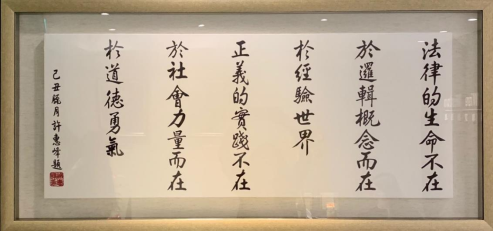 法律的生命不在
於邏輯概念而在
於經驗世界
正義的實踐不在
於社會力量而在
於道德勇氣
己丑臘月許惠峰題